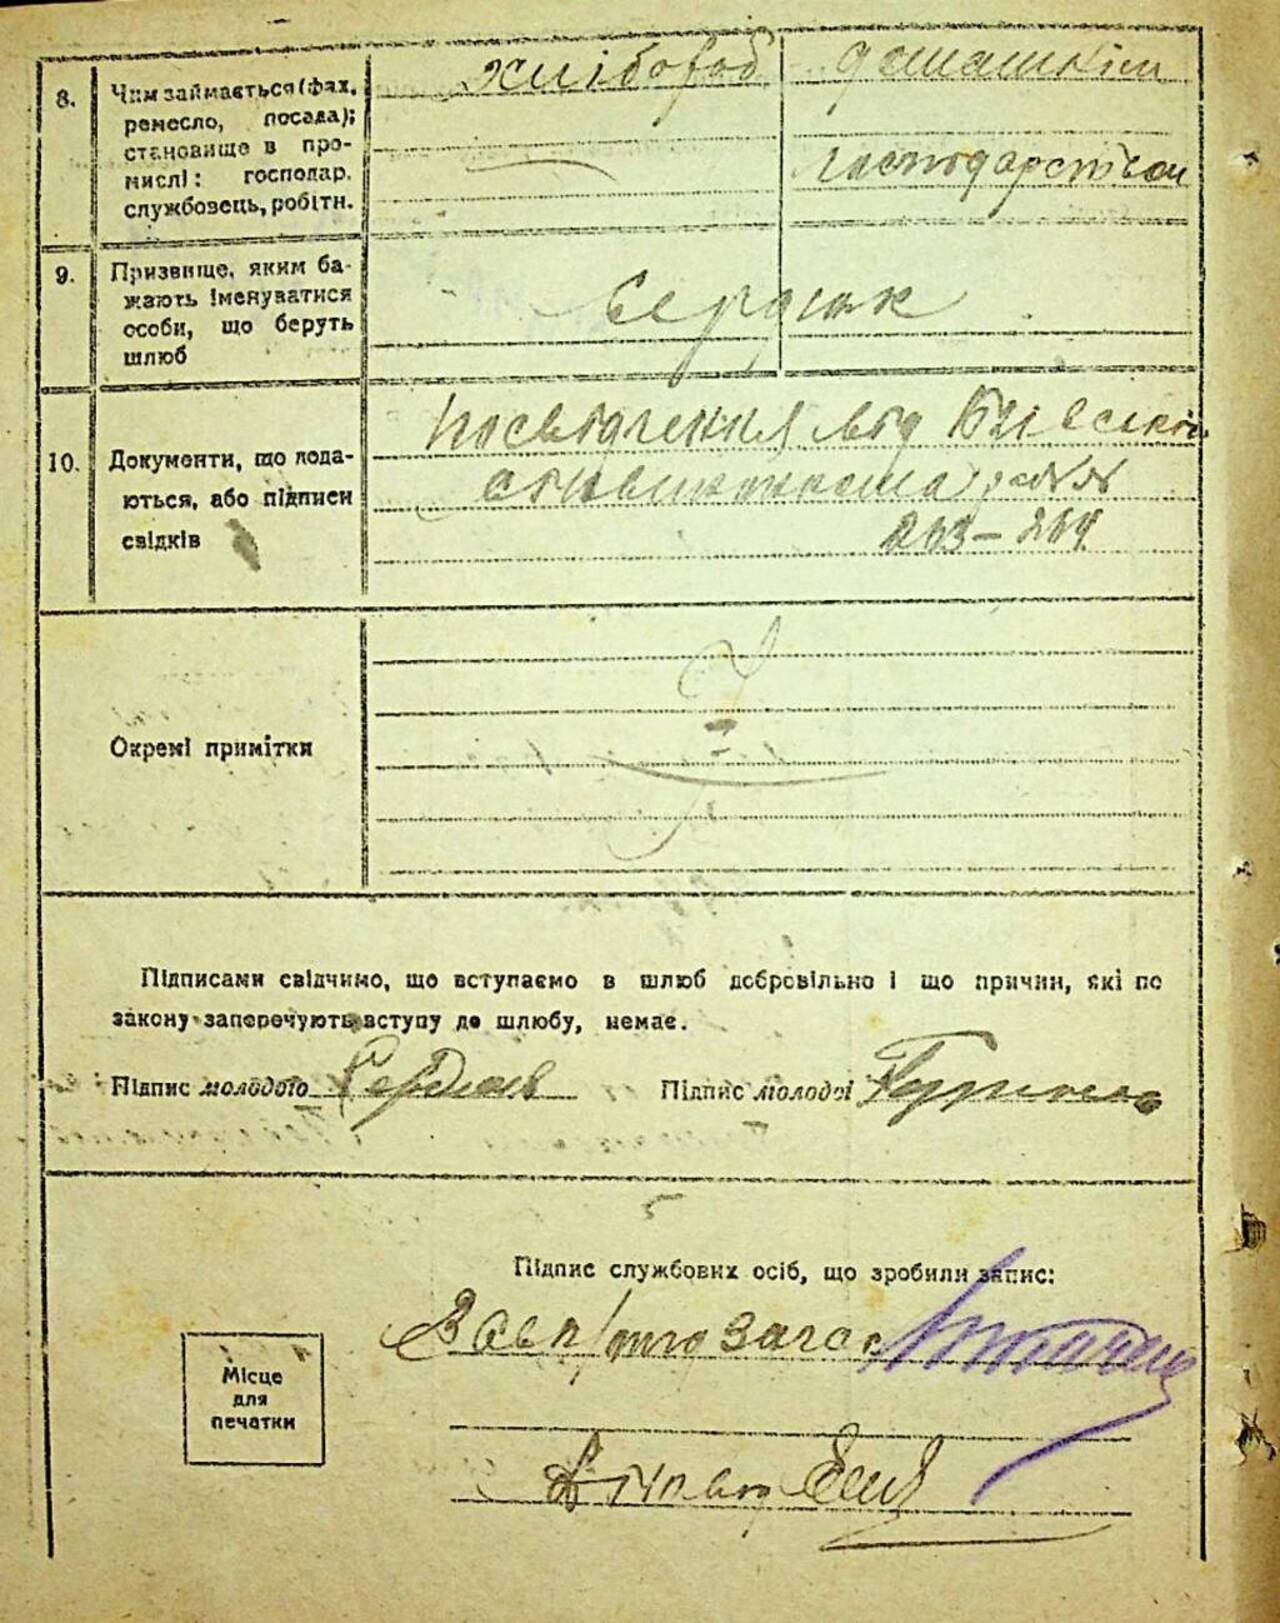 хлібороб домашнім
8. Чим займається (фах,
ремесло, посада);
становище в про-
мислі: господар,
службовець, робітн.
господарством
9. Призвище, яким ба-
жають іменуватися
особи, що беруть
шлюб
Сердюк
10. Документи, що пода-
ються, або підписи
свідків
Посвідчення від
263 – 264
Окремі примітки
Підписами свідчимо, що вступаємо в шлюб добровільно і що причин, які по
закону заперечують вступу до шлюбу, немає.
Підпис молодого Сердюк Підпис молодої
Підпис службових осіб, що зробили запис:
Місце
для
печатки
Діловод